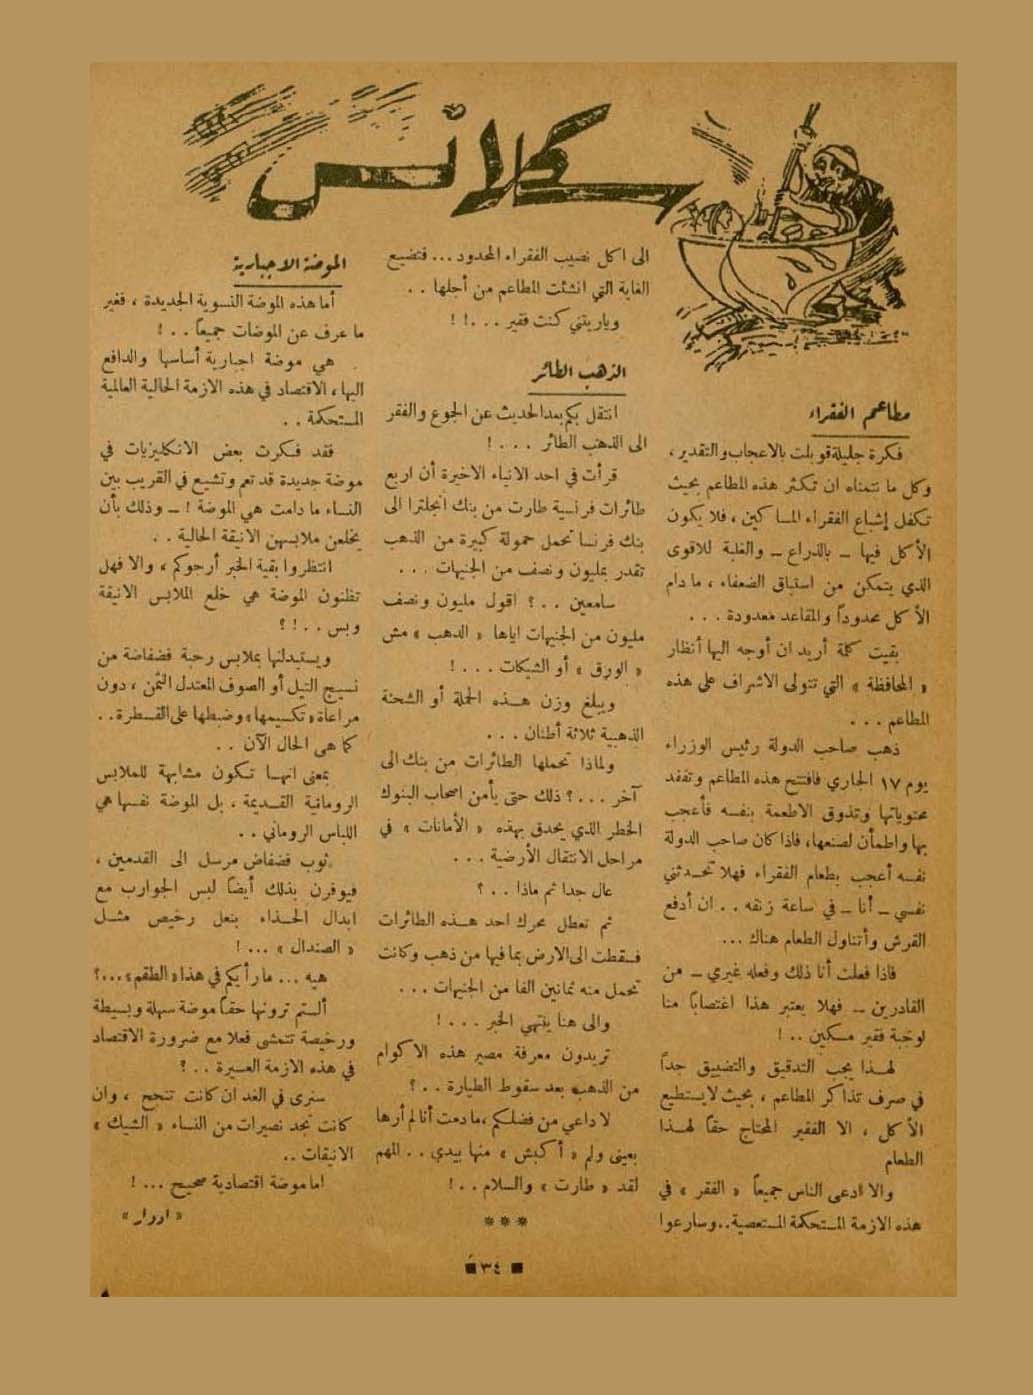 سكلانس
مطاعم الفقراء
فكرة جليلة قوبلت بالاعجاب والتقدير ،
وكل ما نتمناه ان تكثر هذه المطاعم بحيث
تكفل إشباع الفقراء المساكين ، فلا يكون
الأكل فيها ــ بالذراع ــ والغلبة للاقوى
الذي يتمكن من استباق الضعفاء ، مادام
الأكل محدوداً والمقاعد معدودة . . .
بقيت كلمة أريد ان أوجه اليها أنظار
« المحافظة » التي تتولى الاشراف على هذه
المطاعم . . .
ذهب صاحب الدولة رئيس الوزراء
يوم ١٧ الجاري فافتتح هذه المطاعم وتفقد
محتوياتها وتذوق الاطعمة بنفسه فأعجب
بها واطمأن لصنعها، فاذا كان صاحب الدولة
نفسه أعجب بطعام الفقراء فهلا تحدثني
نفسي ــ أنا ــ في ساعة زنقه . . ان أدفع
القرش وأتناول الطعام هناك ...
فاذا فعلت أنا ذلك وفعله غيري ــ من
القادرين ــ فهلا يعتبر هذا اغتصاباً منا
لوجبة فقير مسكين . . !
لهذا يجب التدقيق والتضييق جداً
في صرف تذاكر المطاعم ، بحيث لايستطيع
الأكل ، الا الفقير المحتاج حقاً لهذا
الطعام
والا ادعى الناس جميعاً « الفقر » في
هذه الازمة المستحكمة المستعصية.. وسارعوا
الى اكل نصيب الفقراء المحدود ... فتضيع
الغاية التي انشئت المطاعم من أجلها . .
وياريتني كنت فقير . . .! !
الذهب الطائر
انتقل بكم بعد الحديث عن الجوع والفقر
الى الذهب الطائر . . . !
قرأت في احد الانباء الاخيرة أن اربع
طائرات فرنسية طارت من بنك انجلترا الى
بنك فرنسا تحمل حمولة كبيرة من الذهب
تقدر بمليون ونصف من الجنيهات . . .
سامعين . . ؟ اقول مليون ونصف
مليون من الجنيهات اياها « الدهب » مش
« الورق » أو الشيكات . . . !
ويبلغ وزن هذه الحملة أو الشحنة
الذهبية ثلاثة أطنان . . .
ولماذا تحملها الطائرات من بنك الى
آخر . . . ؟ ذلك حتى يأمن اصحاب البنوك
الخطر الذي يحدق بهذه « الأمانات » في
مراحل الانتقال الأرضية . . .
عال جدا ثم ماذا . . ؟
ثم تعطل محرك احد هذه الطائرات
فسقطت الى الارض بما فيها من ذهب وكانت
تحمل منه ثمانين الفا من الجنيهات . . .
والى هنا ينتهي الخبر . . . !
تريدون معرفة مصير هذه الاكوام
من الذهب بعد سقوط الطيارة . . ؟
لا داعي من فضلكم، مادمت أنا لم أرها
بعيني ولم « أكبش » منها بيدي . . المهم
لقد « طارت » والسلام . . !
***
الموضة الاجبارية
أما هذه الموضة النسوية الجديدة ، فغير
ما عرف عن الموضات جميعاً . . !
هي موضة اجبارية أساسها والدافع
اليها، الاقتصاد في هذه الازمة الحالية العالمية
المستحكمة . .
فقد فكرت بعض الانكليزيات في
موضة جديدة قد تعم وتشيع في القريب بين
النساء مادامت هي الموضة ! ــ وذلك بأن
يخلعن ملابسهن الانيقة الحالية . .
انتظروا بقية الخبر أرجوكم ، والا فهل
تظنون الموضة هي خلع الملابس الانيقة
وبس . . ! ؟
ويستبدلنها بملابس رحبة فضفاضة من
نسيج التيل أو الصوف المعتدل الثمن ، دون
مراعاة « تكسيمها » وضبطها على القسطرة . .
كما هى الحال الآن . .
بمعنى انها تكون مشابهة للملابس
الرومانية القديمة ، بل الموضة نفسها هي
اللباس الروماني . .
ثوب فضفاض مرسل الى القدمين ،
فيوفرن بذلك أيضاً لبس الجوارب مع
ابدال الحذاء بنعل رخيص مثل
« الصندال » ... !
هيه ... ما رأيكم في هذا « الطقم » ...؟
ألستم ترونها حقاً موضة سهلة وبسيطة
ورخيصة تتمشى فعلا مع ضرورة الاقتصاد
في هذه الازمة العسيرة . . ؟
سنرى في الغد ان كانت تنجح ، وان
كانت تجد نصيرات من النساء « الشيك »
الانيقات . .
اما موضة اقتصادية صحيح ... !
« ادوار »
■ ٣٤ ■